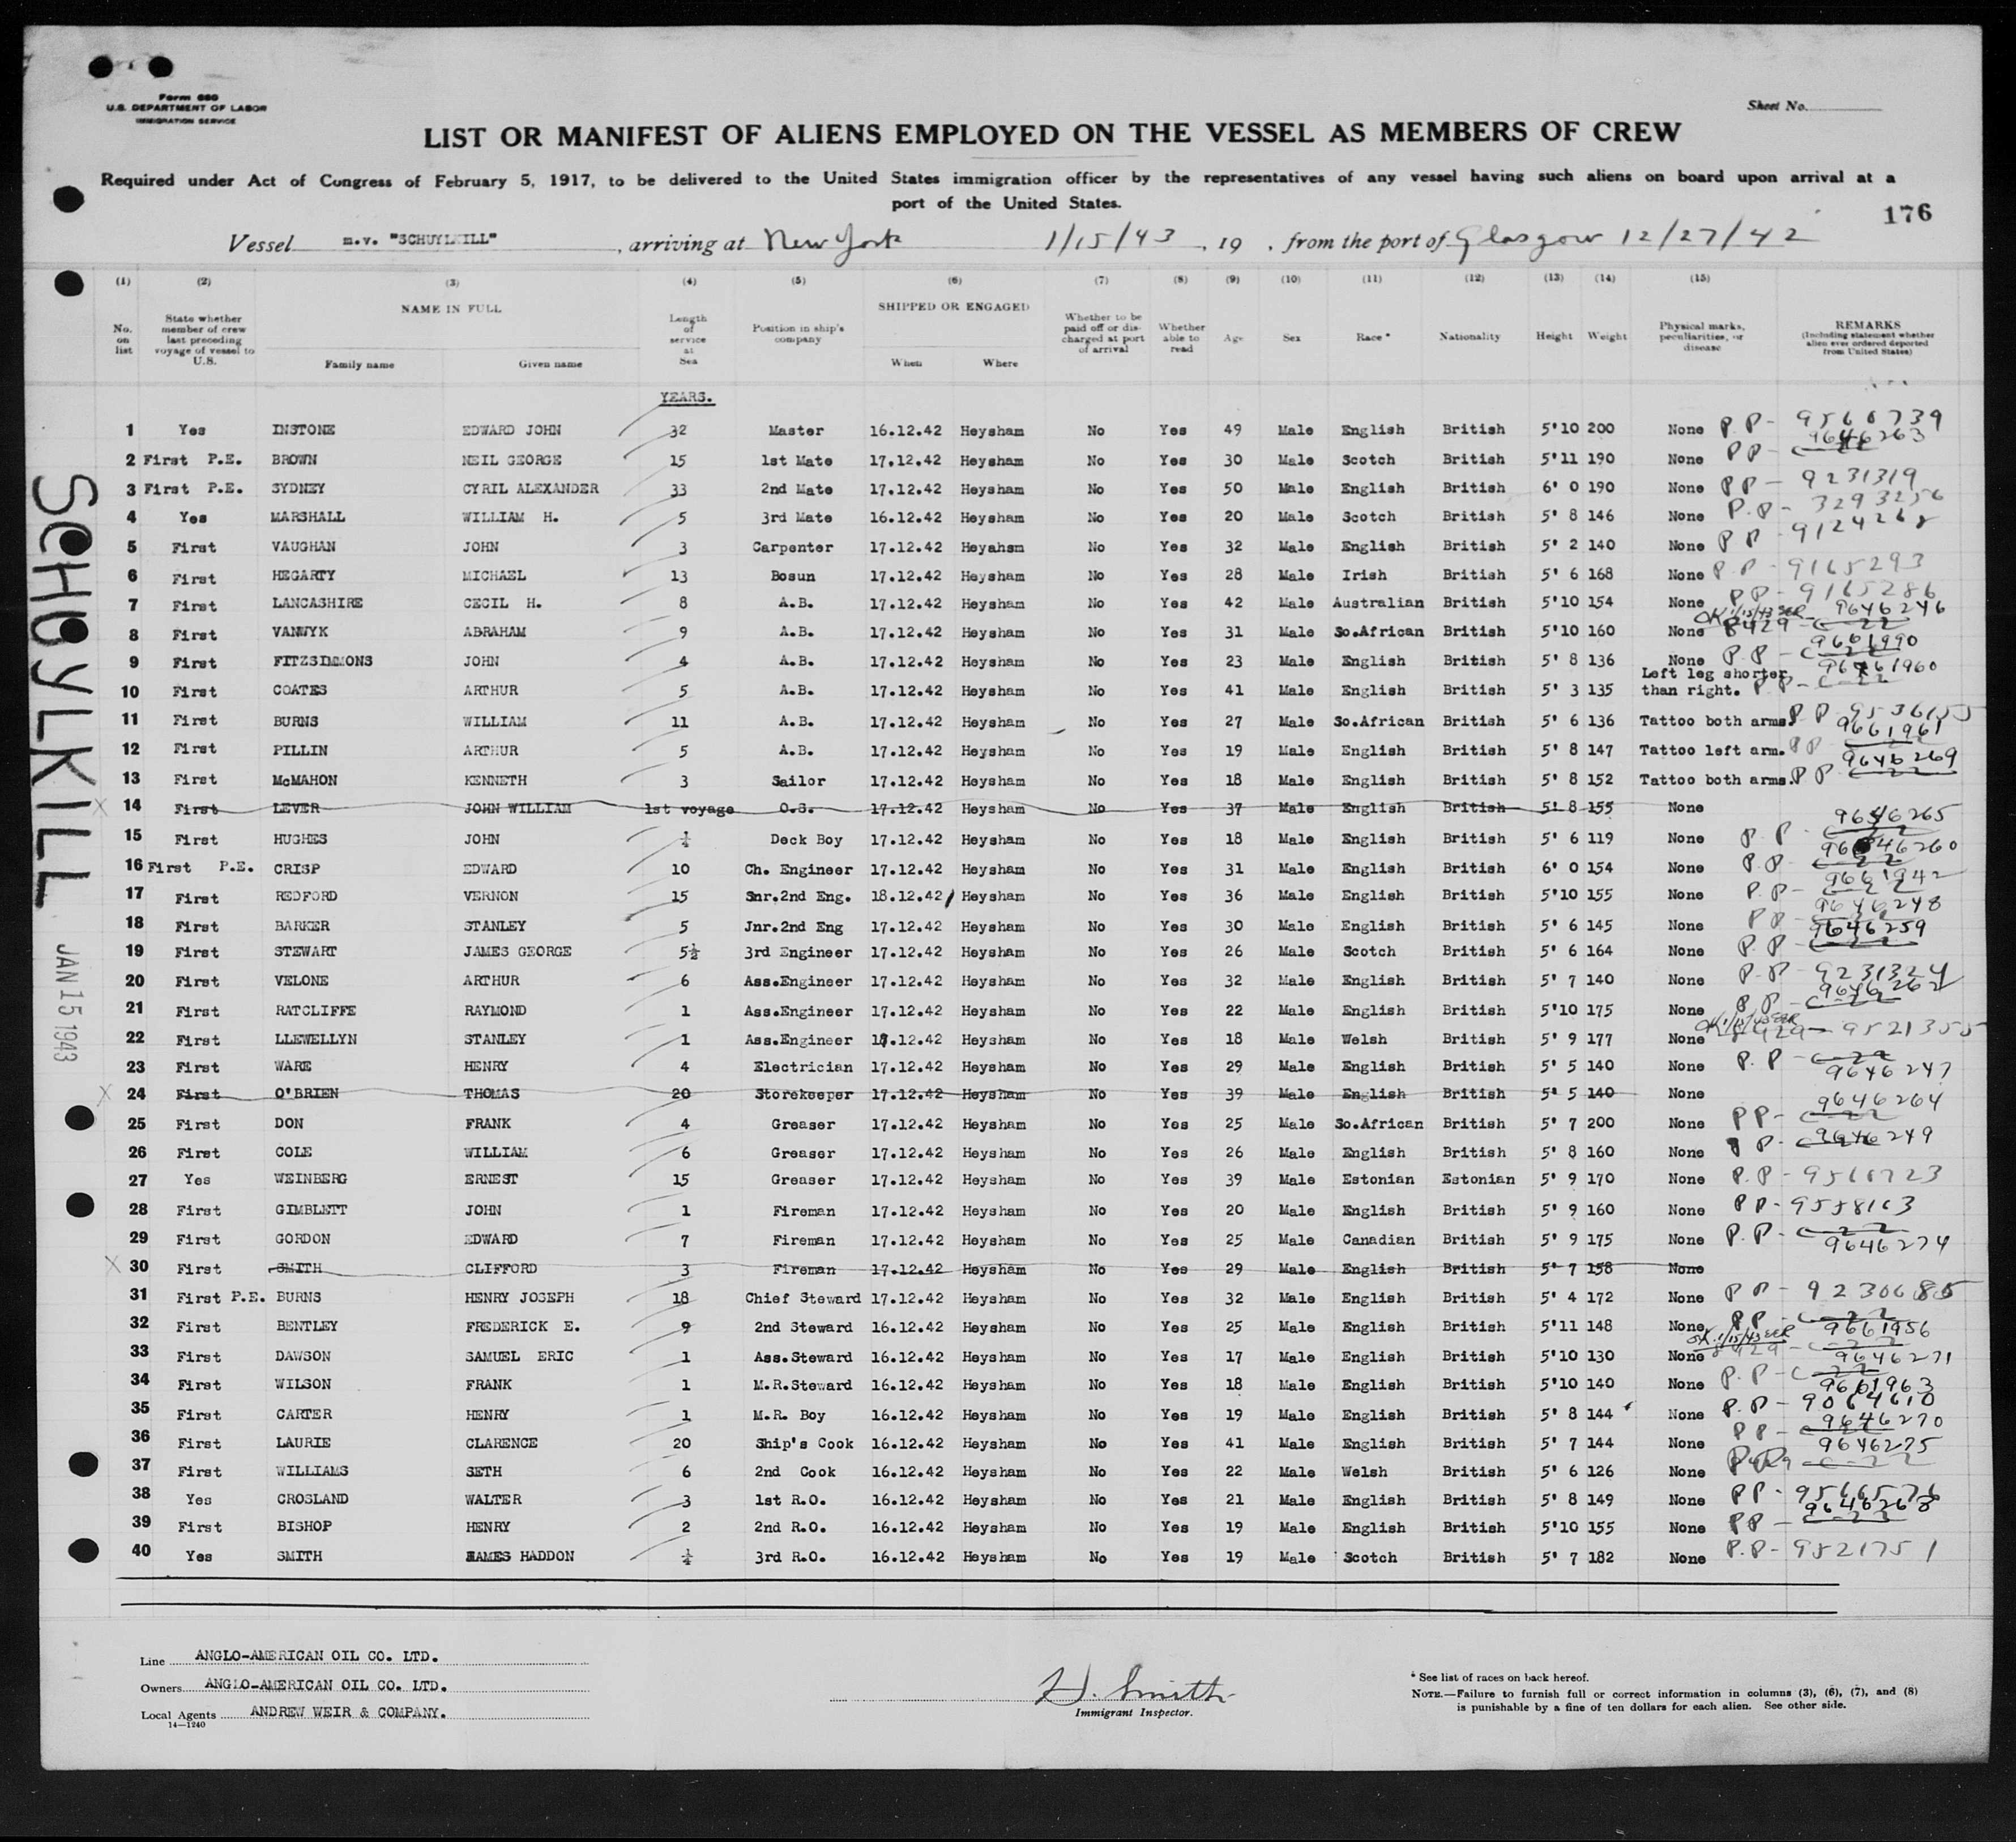 Form 680
U.S. DEPARTMENT OF LABOR
IMMIGRATION SERVICE
Sheet No.
LIST OR MANIFEST OF ALIENS EMPLOYED ON THE VESSEL AS MEMBERS OF CREW
Required under Act of Congress of February 5, 1917, to be delivered to the United States immigration officer by the representatives of any vessel having such aliens on board upon arrival at a
port of the United States.
176
Vessel m.v. "SCHUYLKILL", arriving at New York 1/15/43, 19 , from the port of Glasgow 12/27/42
(1) (2) (3) (4) (5) (6) (7) (8) (9) (10) (11) (12) (13) (14) (15)
No. on list State whether member of crew last preceding voyage of vessel to U.S. NAME IN FULL Family name Given name Length of service at Sea Position in ship's company SHIPPED OR ENGAGED When Where Whether to be paid off or discharged at port of arrival Whether able to read Age Sex Race * Nationality Height Weight Physical marks, peculiarities, or disease REMARKS (Including statement whether alien ever ordered deported from United States)
YEARS.
1 Yes INSTONE EDWARD JOHN 32 Master 16.12.42 Heysham No Yes 49 Male English British 5'10 200 None P.P-
2 First P.E. BROWN NEIL GEORGE 15 1st Mate 17.12.42 Heysham No Yes 30 Male Scotch British 5'11 190 None PP- 9646263
3 First P.E. SYDNEY CYRIL ALEXANDER 33 2nd Mate 17.12.42 Heysham No Yes 50 Male English British 6' 0 190 None PP- 9231319
4 Yes MARSHALL WILLIAM H. 5 3rd Mate 16.12.42 Heysham No Yes 20 Male Scotch British 5' 8 146 None P.P- 3293256
5 First VAUGHAN JOHN 3 Carpenter 17.12.42 Heyahsm No Yes 32 Male English British 5' 2 140 None PP-
6 First HEGARTY MICHAEL 13 Bosun 17.12.42 Heysham No Yes 28 Male Irish British 5' 6 168 None P.P- 9165293
7 First LANCASHIRE CECIL H. 8 A.B. 17.12.42 Heysham No Yes 42 Male Australian British 5'10 154 None PP- 9165286
8 First VANWYK ABRAHAM 9 A.B. 17.12.42 Heysham No Yes 31 Male So.African British 5'10 160 None 9646246
9 First FITZSIMMONS JOHN 4 A.B. 17.12.42 Heysham No Yes 23 Male English British 5' 8 136 None P.P- 9661990
10 First COATES ARTHUR 5 A.B. 17.12.42 Heysham No Yes 41 Male English British 5' 3 135 Left leg shorter than right. P.P-
11 First BURNS WILLIAM 11 A.B. 17.12.42 Heysham No Yes 27 Male So.African British 5' 6 136 Tattoo both arms. P.P 9536155
12 First PILLIN ARTHUR 5 A.B. 17.12.42 Heysham No Yes 19 Male English British 5' 8 147 Tattoo left arm. PP 9661961
13 First McMAHON KENNETH 3 Sailor 17.12.42 Heysham No Yes 18 Male English British 5' 8 152 Tattoo both arms. PP 9646269
14 First LEVER JOHN WILLIAM 1st voyage O.S. 17.12.42 Heysham No Yes 37 Male English British 5' 8 155 None
15 First HUGHES JOHN Deck Boy 17.12.42 Heysham No Yes 18 Male English British 5' 6 119 None P.P- 9646265
16 First P.E. CRISP EDWARD 10 Ch. Engineer 17.12.42 Heysham No Yes 31 Male English British 6' 0 154 None P.P-
17 First REDFORD VERNON 15 Snr.2nd Eng. 18.12.42 Heysham No Yes 36 Male English British 5'10 155 None P.P- 9661942
18 First BARKER STANLEY 5 Jnr.2nd Eng 17.12.42 Heysham No Yes 30 Male English British 5' 6 145 None PP 9646248
19 First STEWART JAMES GEORGE 5½ 3rd Engineer 17.12.42 Heysham No Yes 26 Male Scotch British 5' 6 164 None P.P- 9646259
20 First VELONE ARTHUR 6 Ass.Engineer 17.12.42 Heysham No Yes 32 Male English British 5' 7 140 None P.P- 9231324
21 First RATCLIFFE RAYMOND 1 Ass.Engineer 17.12.42 Heysham No Yes 22 Male English British 5'10 175 None P.P-
22 First LLEWELLYN STANLEY 1 Ass.Engineer 18.12.42 Heysham No Yes 18 Male Welsh British 5' 9 177 None 9521355
23 First WARE HENRY 4 Electrician 17.12.42 Heysham No Yes 29 Male English British 5' 5 140 None P.P- 9646247
24 First O'BRIEN THOMAS 20 Storekeeper 17.12.42 Heysham No Yes 39 Male English British 5' 5 140 None
25 First DON FRANK 4 Greaser 17.12.42 Heysham No Yes 25 Male So.African British 5' 7 200 None PP- 9646264
26 First COLE WILLIAM 6 Greaser 17.12.42 Heysham No Yes 26 Male English British 5' 8 160 None P- 9646249
27 Yes WEINBERG ERNEST 15 Greaser 17.12.42 Heysham No Yes 39 Male Estonian Estonian 5' 9 170 None P.P-
28 First GIMBLETT JOHN 1 Fireman 17.12.42 Heysham No Yes 20 Male English British 5' 9 160 None PP- 9558163
29 First GORDON EDWARD 7 Fireman 17.12.42 Heysham No Yes 25 Male Canadian British 5' 9 175 None P.P- 9646274
30 First SMITH CLIFFORD 3 Fireman 17.12.42 Heysham No Yes 29 Male English British 5' 7 158 None
31 First P.E. BURNS HENRY JOSEPH 18 Chief Steward 17.12.42 Heysham No Yes 32 Male English British 5' 4 172 None PP-
32 First BENTLEY FREDERICK E. 9 2nd Steward 16.12.42 Heysham No Yes 25 Male English British 5'11 148 None PP- 9661956
33 First DAWSON SAMUEL ERIC 1 Ass.Steward 16.12.42 Heysham No Yes 17 Male English British 5'10 130 None 9646271
34 First WILSON FRANK 1 M.R.Steward 16.12.42 Heysham No Yes 18 Male English British 5'10 140 None P.P- 9661963
35 First CARTER HENRY 1 M.R. Boy 16.12.42 Heysham No Yes 19 Male English British 5' 8 144 None P.P- 9064610
36 First LAURIE CLARENCE 20 Ship's Cook 16.12.42 Heysham No Yes 41 Male English British 5' 7 144 None PP- 9646270
37 First WILLIAMS SETH 6 2nd Cook 16.12.42 Heysham No Yes 22 Male Welsh British 5' 6 126 None 9646275
38 Yes CROSLAND WALTER 3 1st R.O. 16.12.42 Heysham No Yes 21 Male English British 5' 8 149 None PP-
39 First BISHOP HENRY 2 2nd R.O. 16.12.42 Heysham No Yes 19 Male English British 5'10 155 None PP- 9646268
40 Yes SMITH JAMES HADDON 3rd R.O. 16.12.42 Heysham No Yes 19 Male Scotch British 5' 7 182 None P.P- 9521751
SCHUYLKILL
JAN 15 1943
Line ANGLO-AMERICAN OIL CO. LTD.
Owners ANGLO-AMERICAN OIL CO. LTD.
Local Agents ANDREW WEIR & COMPANY.
14—1240
H. Smith
Immigrant Inspector.
* See list of races on back hereof.
NOTE.—Failure to furnish full or correct information in columns (3), (6), (7), and (8)
is punishable by a fine of ten dollars for each alien. See other side.